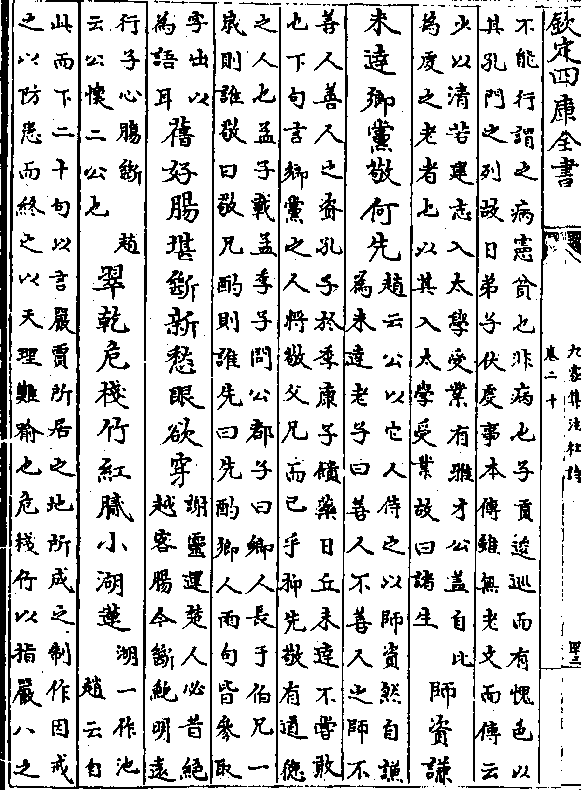 欽定四庫全書
九家集注杜詩
卷二十
不能行謂之病憲貧也非病也子貢逡巡而有愧色以
其孔門之列故曰弟子伏䖍事本傳雖無老文而傳云
少以清苦建志入太學受業有雅才公盖自比
為䖍之老者也以其入太學受業故曰諸生
師資謙
未達鄉黨敬何先
趙云公以它人待之以師資然自謙
為未達老子曰善人不善人之師不
善人善人之資孔子於季康子饋藥曰丘未達不嘗敢
也下句言鄉黨之人將敬父兄而已乎抑先敬有道德
之人也孟子載孟季子問公都子曰鄉人長于伯兄一
歲則誰敬曰敬兄酌則誰先曰先酌鄉人兩句皆參取
字出以
為語耳
舊好腸堪斷新愁眼欲穿
謝靈運楚人必昔絕
越客腸今斷鮑明遠
行子心腸斷 趙
云公懷二公也
翠乾危棧竹紅膩小湖蓮
湖一作池
趙云自
此而下二十句以言嚴賈所居之地所成之制作因戒
之以防患而終之以天理難喻也危棧竹以指嚴八之